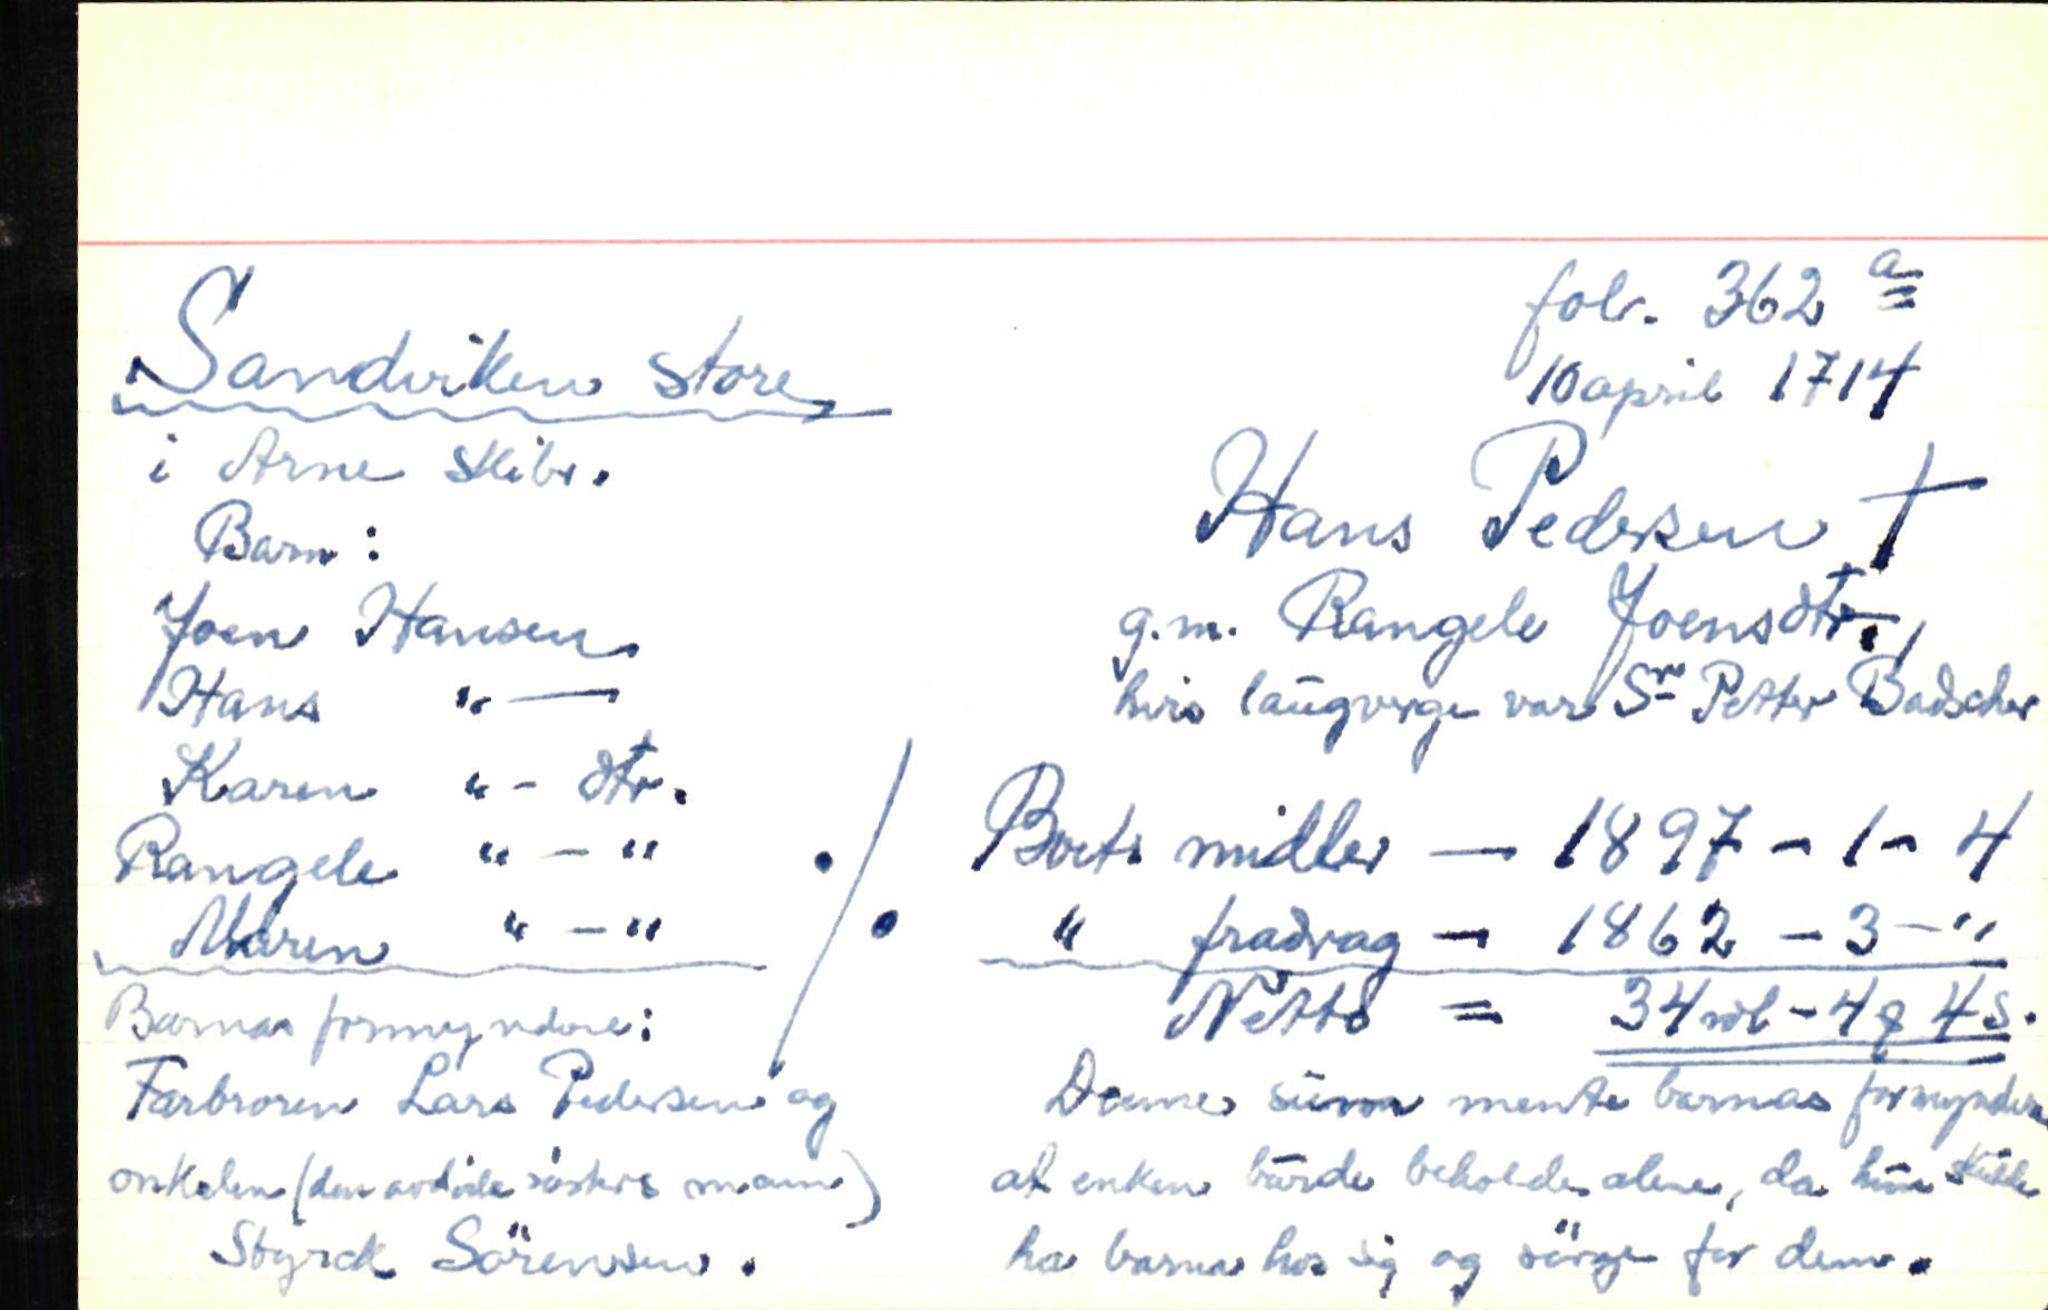 fol. 362 a
10 april 1714
Sandviken store
i Arne skibr.
Barn:
Joen Hansen.
Hans " —
Karen " - dtr.
Rangele " - "
Maren " - "
Barnas formyndere:
Farbroren Lars Pedersen og
onkelen (den avdøde søsters mann)
Styrck Sörensen.
Hans Pedersen †
g.m. Rangele Joensdtr.,
hvis laugverge var Sr Petter Badscher
Boets midler — 1897 - 1 - 4
" fradrag — 1862 - 3 - "
Netto = 34 rdl - 4 q 4 s.
Denne sum mente barnas formyndere
at enken burde beholde alene, da hun skulle
ha barna hos sig og sörge for dem.